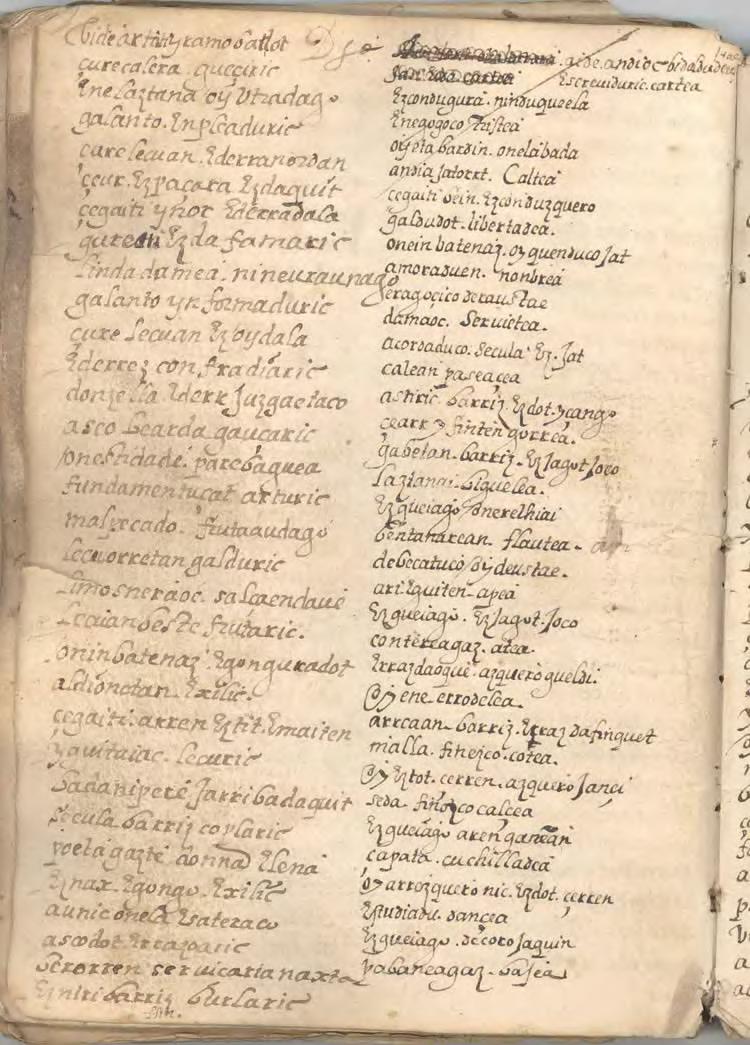 bide artu y ramo ballot
çure calera guçiric
Ene laztana oy Vtradago
galanto. Enpleaduric
çure lecuan. Ederran ordan
çeur. Ez pacara Ezdaquit
çegaiti yñor Ederradala
gure Ezda famaric
Linda damea. nin eure aurrago
galanto yn formaduric
çure Lecuan Ez oy dala
Ederrez confradiaric
donzella Ederr Juzgaetaco
asco bearda gauçaric
onestidade. parebaguea
fundamentucat arturic
mal pecado. frutaaudago
lecuorretan galduric
Limosneraoc. salçaendaue
Leaian beste frutaric.
onin batenaz Egonguradot
aldionetan. Exilic.
çegaiti. arren Eztit. Emaiten
y guitaiac. lecuric
badanipere Jarri badaquit
secula barriz coplaric
poeta gazte. donna Elena
Eznax. Egongo. Exilic
aunic onela Esateraco
asco dot Errazoaric
Serorren seruicaria naxta
Ez niri barriz burlaric
fin.
aide. andioc bidaldu deust
Escreuiduric. cartea
Ezcondugura. ninduqueela
Enegogoco tristea
oy eta bardin. onelabada
andia jatorrt. Caltea
çegaiti bein. Ezconduzquero
galdudot. libertadea.
onein batenaz. oz quenduco jat
amoraduen. nonbrea
eragoçico deraustae
damaoc. Seruietea.
acordaduco. secula Ez. Jat
calean paseaçea
astiric barriz. Ezdot yçango
çearr y finten gorrea.
gabetan. barriz. Ez Jagot Joco
Laztanai. biguelea.
Ez gueiago onerelhiai
bentanarean. flautea.
debecatuco oy deustae.
ari. Eguiten. apea
Ez gueiago. Ez Jagot. Joco
contereagaz. atea.
Errazdaoque. azquero gueldi.
oy ene. errodelea.
arreaan. barriz. Erraz dafinquet
malla. finezco. cotea.
oy Eztot. cerren. azquero Janci
seda. fiñezco calcea
Ez gueiago aren ganean
capata. cuchilladea
oz arrozquero nic. Ezdot. cerren
Estudiadu. dancea
Ez gueiago. decoro jaquin
pabaneagaz. baxea